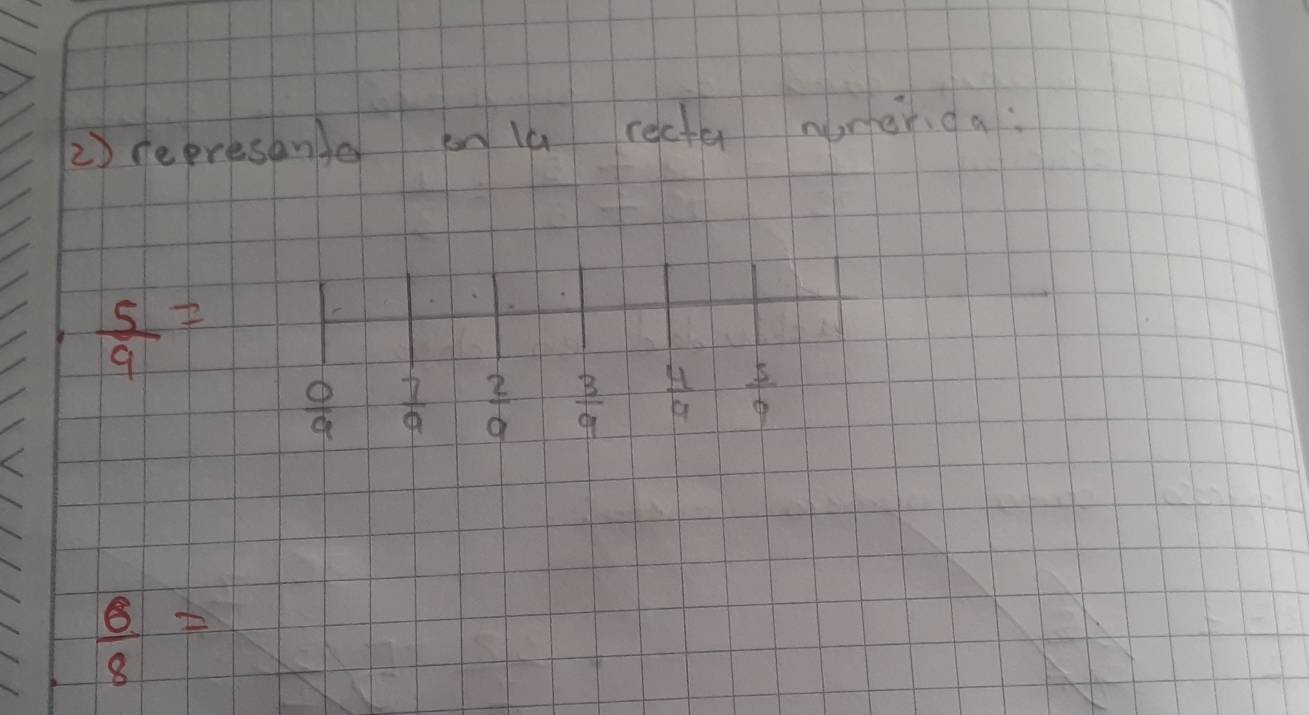 2) represanta en la recta numérida:
5/9 =
0/9 1/9 2/9 3/9 4/9 5/9
6/8 =